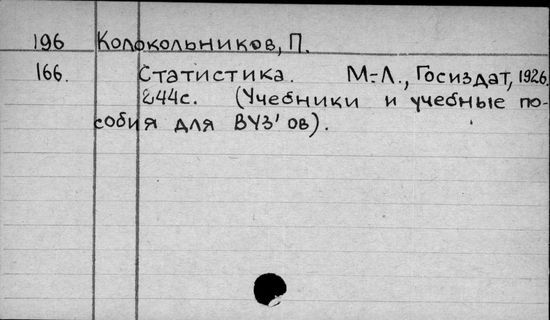 196 Колокольников, П.
166. Статистика. М.-Л., Госиздат, 1926.
244с. (Учебники и учебные по-
собия для ВУЗ'ов).